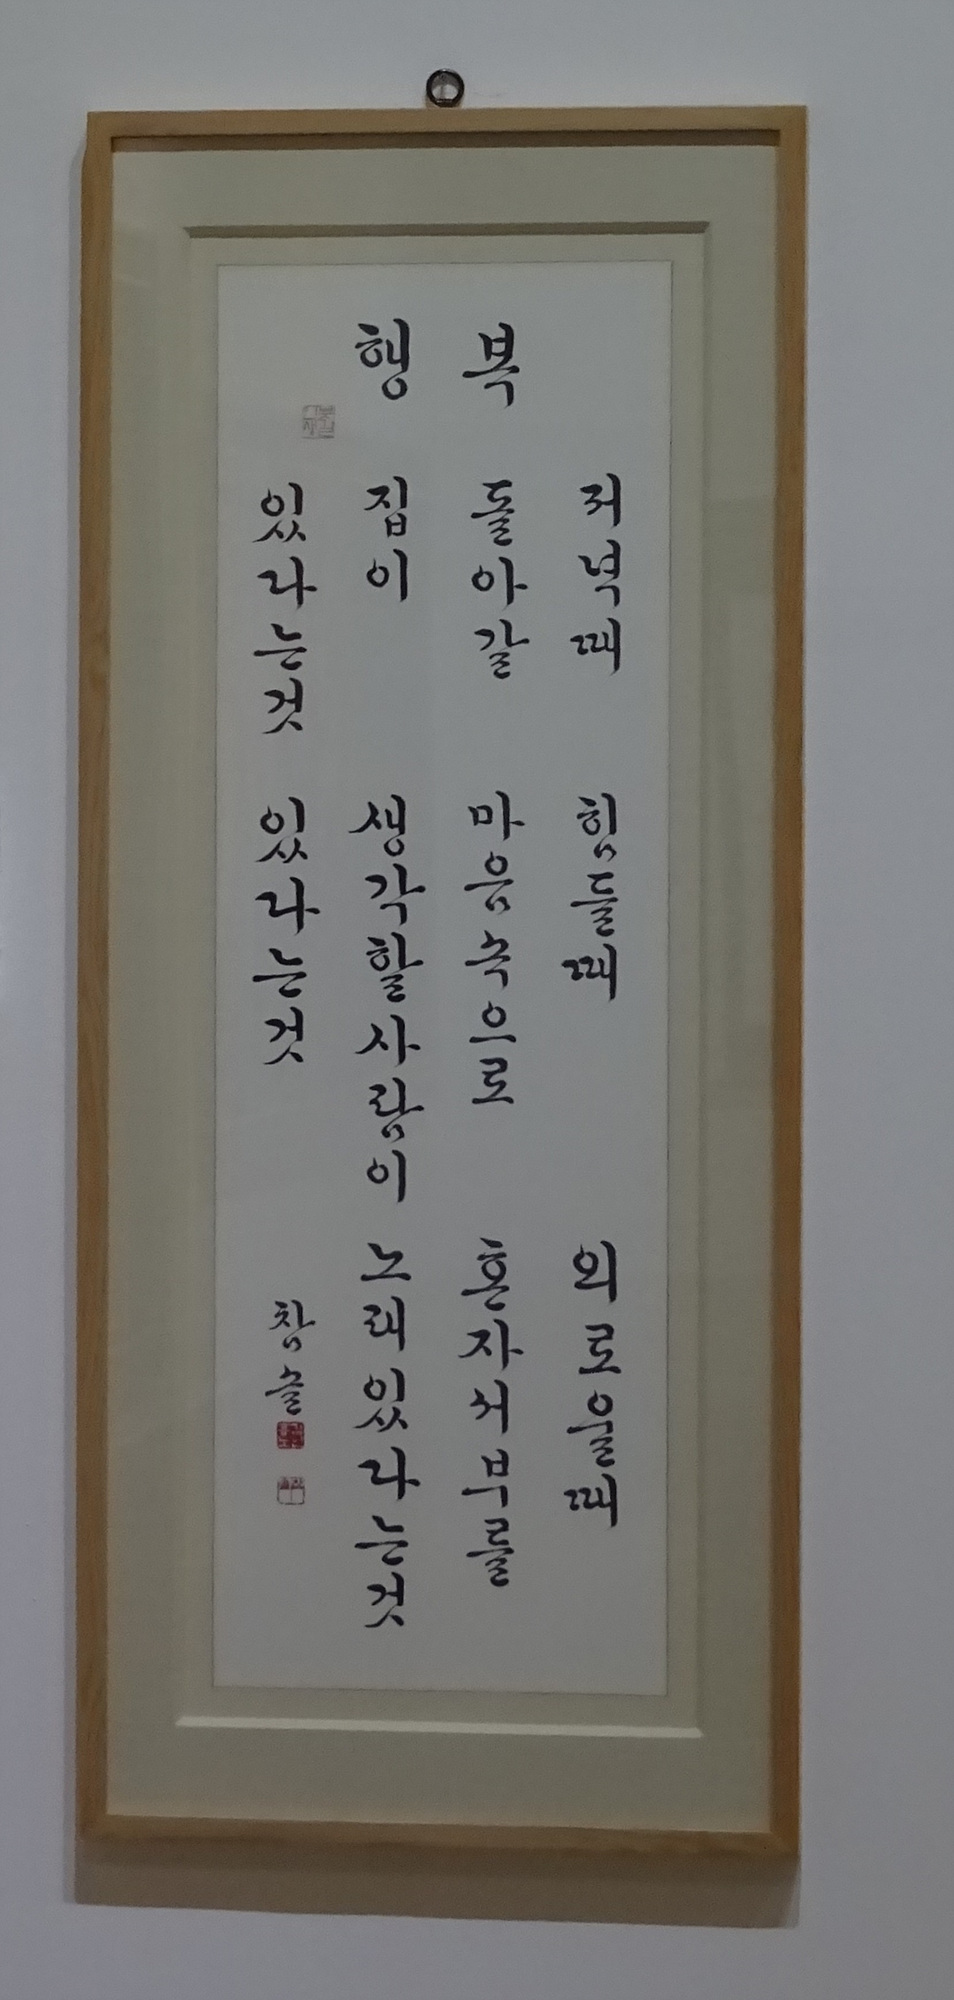 행 복
저녁때
돌아갈
집이
있다는것
힘들때
마음속으로
생각할사람이
있다는것
외로울때
혼자서부를
노래있다는것
참솔